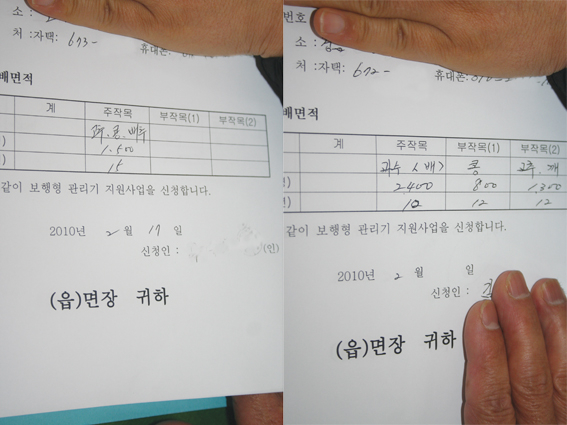 소 :
처 :자택: 673-
휴대폰:
배면적
계 주작목 부작목(1) 부작목(2)
콩. 배추
1.500
15
같이 보행형 관리기 지원사업을 신청합니다.
2010년 2 월 17 일
신청인 : (인)
(읍)면장 귀하
번호
소 :
처 :자택: 672-
휴대폰:
배면적
계 주작목 부작목(1) 부작목(2)
과수 (배) 콩 고추. 깨
2400 800 1,300
12 12 12
같이 보행형 관리기 지원사업을 신청합니다.
2010년 2 월 일
신청인 :
(읍)면장 귀하